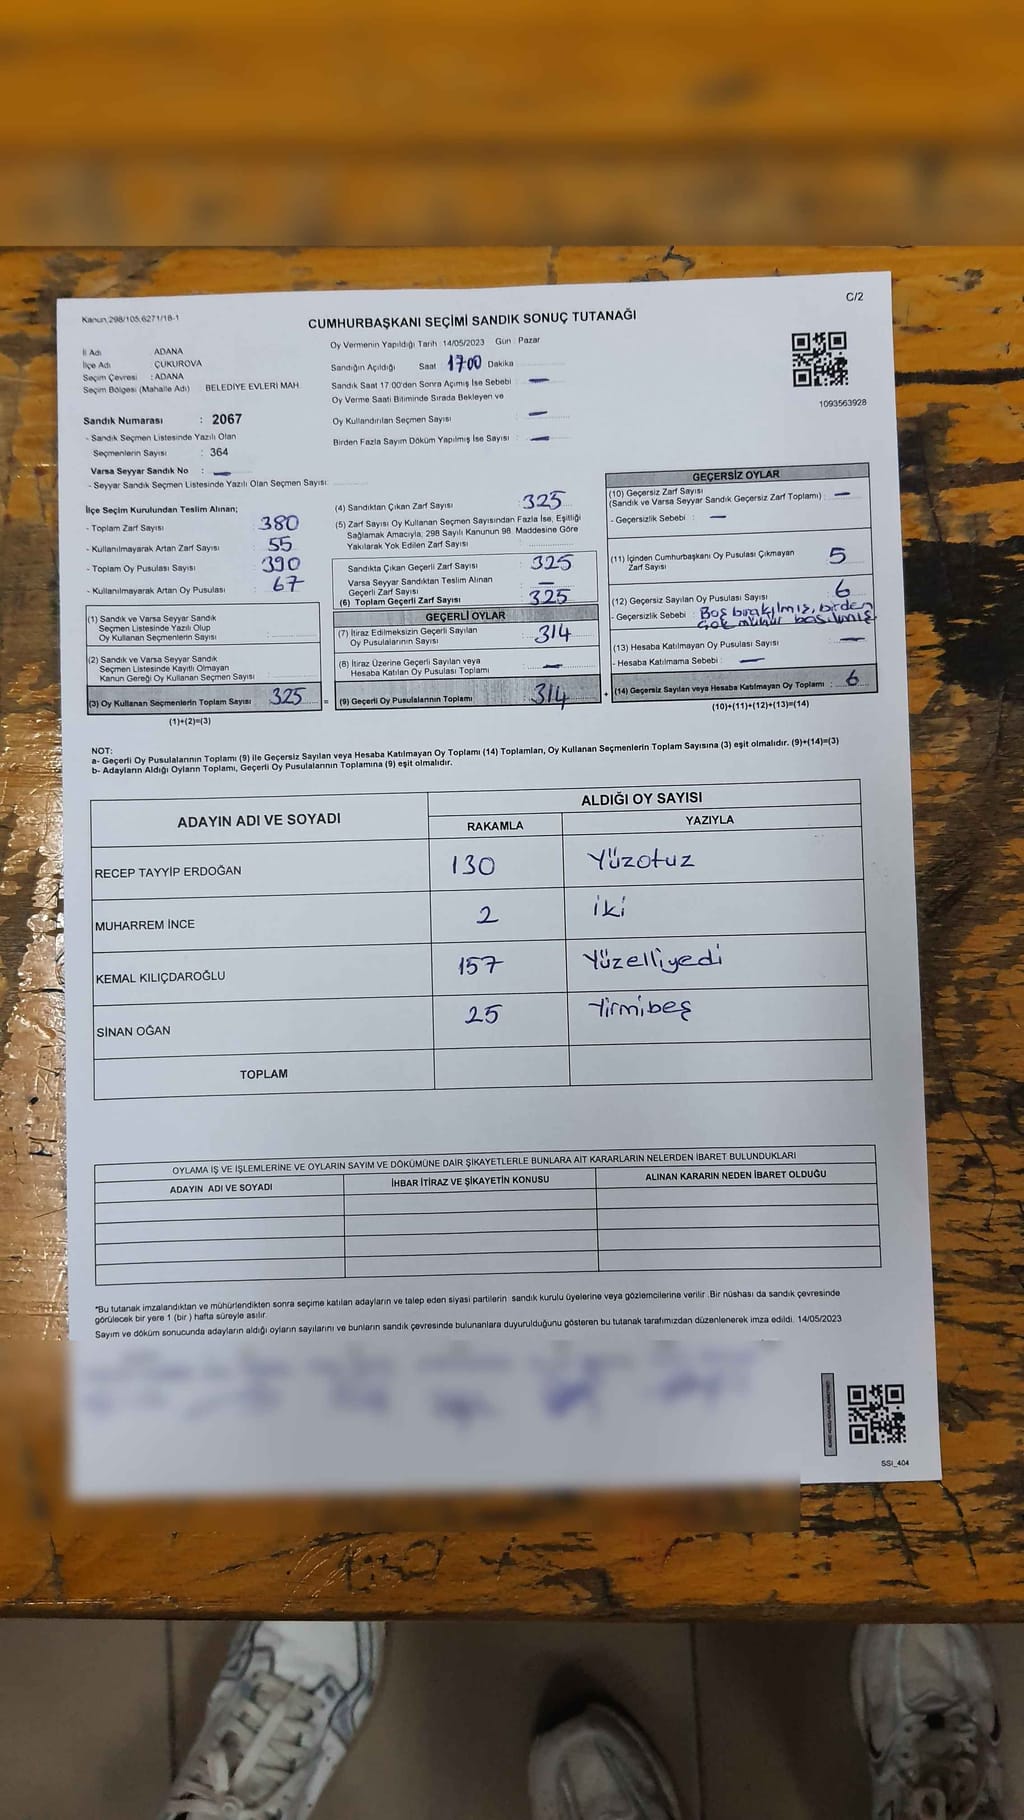 Kanun,298/105,6271/18-1
C/2
CUMHURBAŞKANI SEÇİMİ SANDIK SONUÇ TUTANAĞI
İl Adı ADANA
İlçe Adı ÇUKUROVA
Seçim Çevresi : ADANA
Seçim Bölgesi (Mahalle Adı) BELEDİYE EVLERİ MAH.
Sandık Numarası : 2067
- Sandık Seçmen Listesinde Yazılı Olan
Seçmenlerin Sayısı : 364
Varsa Seyyar Sandık No : —
- Seyyar Sandık Seçmen Listesinde Yazılı Olan Seçmen Sayısı:
Oy Vermenin Yapıldığı Tarih 14/05/2023 Gün : Pazar
Sandığın Açıldığı Saat 17:00 Dakika
Sandık Saat 17:00'den Sonra Açımış İse Sebebi : —
Oy Verme Saati Bitiminde Sırada Bekleyen ve
Oy Kullandırılan Seçmen Sayısı : —
Birden Fazla Sayım Döküm Yapılmış İse Sayısı : —
1093563928
İlçe Seçim Kurulundan Teslim Alınan;
- Toplam Zarf Sayısı : 380
- Kullanılmayarak Artan Zarf Sayısı : 55
- Toplam Oy Pusulası Sayısı : 390
- Kullanılmayarak Artan Oy Pusulası : 67
(1) Sandık ve Varsa Seyyar Sandık
Seçmen Listesinde Yazılı Olup
Oy Kullanan Seçmenlerin Sayısı :
(2) Sandık ve Varsa Seyyar Sandık
Seçmen Listesinde Kayıtlı Olmayan
Kanun Gereği Oy Kullanan Seçmen Sayısı :
(3) Oy Kullanan Seçmenlerin Toplam Sayısı : 325
(1)+(2)=(3)
(4) Sandıktan Çıkan Zarf Sayısı : 325
(5) Zarf Sayısı Oy Kullanan Seçmen Sayısından Fazla İse, Eşitliği
Sağlamak Amacıyla; 298 Sayılı Kanunun 98. Maddesine Göre
Yakılarak Yok Edilen Zarf Sayısı :
Sandıkta Çıkan Geçerli Zarf Sayısı : 325
Varsa Seyyar Sandıktan Teslim Alınan
Geçerli Zarf Sayısı : —
(6) Toplam Geçerli Zarf Sayısı : 325
GEÇERLİ OYLAR
(7) İtiraz Edilmeksizin Geçerli Sayılan
Oy Pusulalarının Sayısı : 314
(8) İtiraz Üzerine Geçerli Sayılan veya
Hesaba Katılan Oy Pusulası Toplamı : —
= (9) Geçerli Oy Pusulalarının Toplamı : 314 +
GEÇERSİZ OYLAR
(10) Geçersiz Zarf Sayısı
(Sandık ve Varsa Seyyar Sandık Geçersiz Zarf Toplamı) : —
- Geçersizlik Sebebi : —
(11) İçinden Cumhurbaşkanı Oy Pusulası Çıkmayan
Zarf Sayısı : 5
(12) Geçersiz Sayılan Oy Pusulası Sayısı : 6
- Geçersizlik Sebebi : Boş bırakılmış, birden
çok mühür basılmış
(13) Hesaba Katılmayan Oy Pusulası Sayısı : —
- Hesaba Katılmama Sebebi : —
(14) Geçersiz Sayılan veya Hesaba Katılmayan Oy Toplamı : 6
(10)+(11)+(12)+(13)=(14)
NOT:
a- Geçerli Oy Pusulalarının Toplamı (9) ile Geçersiz Sayılan veya Hesaba Katılmayan Oy Toplamı (14) Toplamları, Oy Kullanan Seçmenlerin Toplam Sayısına (3) eşit olmalıdır. (9)+(14)=(3)
b- Adayların Aldığı Oyların Toplamı, Geçerli Oy Pusulalarının Toplamına (9) eşit olmalıdır.
ADAYIN ADI VE SOYADI
ALDIĞI OY SAYISI
RAKAMLA YAZIYLA
RECEP TAYYİP ERDOĞAN 130 Yüzotuz
MUHARREM İNCE 2 iki
KEMAL KILIÇDAROĞLU 157 Yüzelliyedi
SİNAN OĞAN 25 Yirmibeş
TOPLAM
OYLAMA İŞ VE İŞLEMLERİNE VE OYLARIN SAYIM VE DÖKÜMÜNE DAİR ŞİKAYETLERLE BUNLARA AİT KARARLARIN NELERDEN İBARET BULUNDUKLARI
ADAYIN ADI VE SOYADI İHBAR İTİRAZ VE ŞİKAYETİN KONUSU ALINAN KARARIN NEDEN İBARET OLDUĞU
*Bu tutanak imzalandıktan ve mühürlendikten sonra seçime katılan adayların ve talep eden siyasi partilerin sandık kurulu üyelerine veya gözlemcilerine verilir .Bir nüshası da sandık çevresinde
görülecek bir yere 1 (bir ) hafta süreyle asılır.
Sayım ve döküm sonucunda adayların aldığı oyların sayılarını ve bunların sandık çevresinde bulunanlara duyurulduğunu gösteren bu tutanak tarafımızdan düzenlenerek imza edildi. 14/05/2023
SSI_404